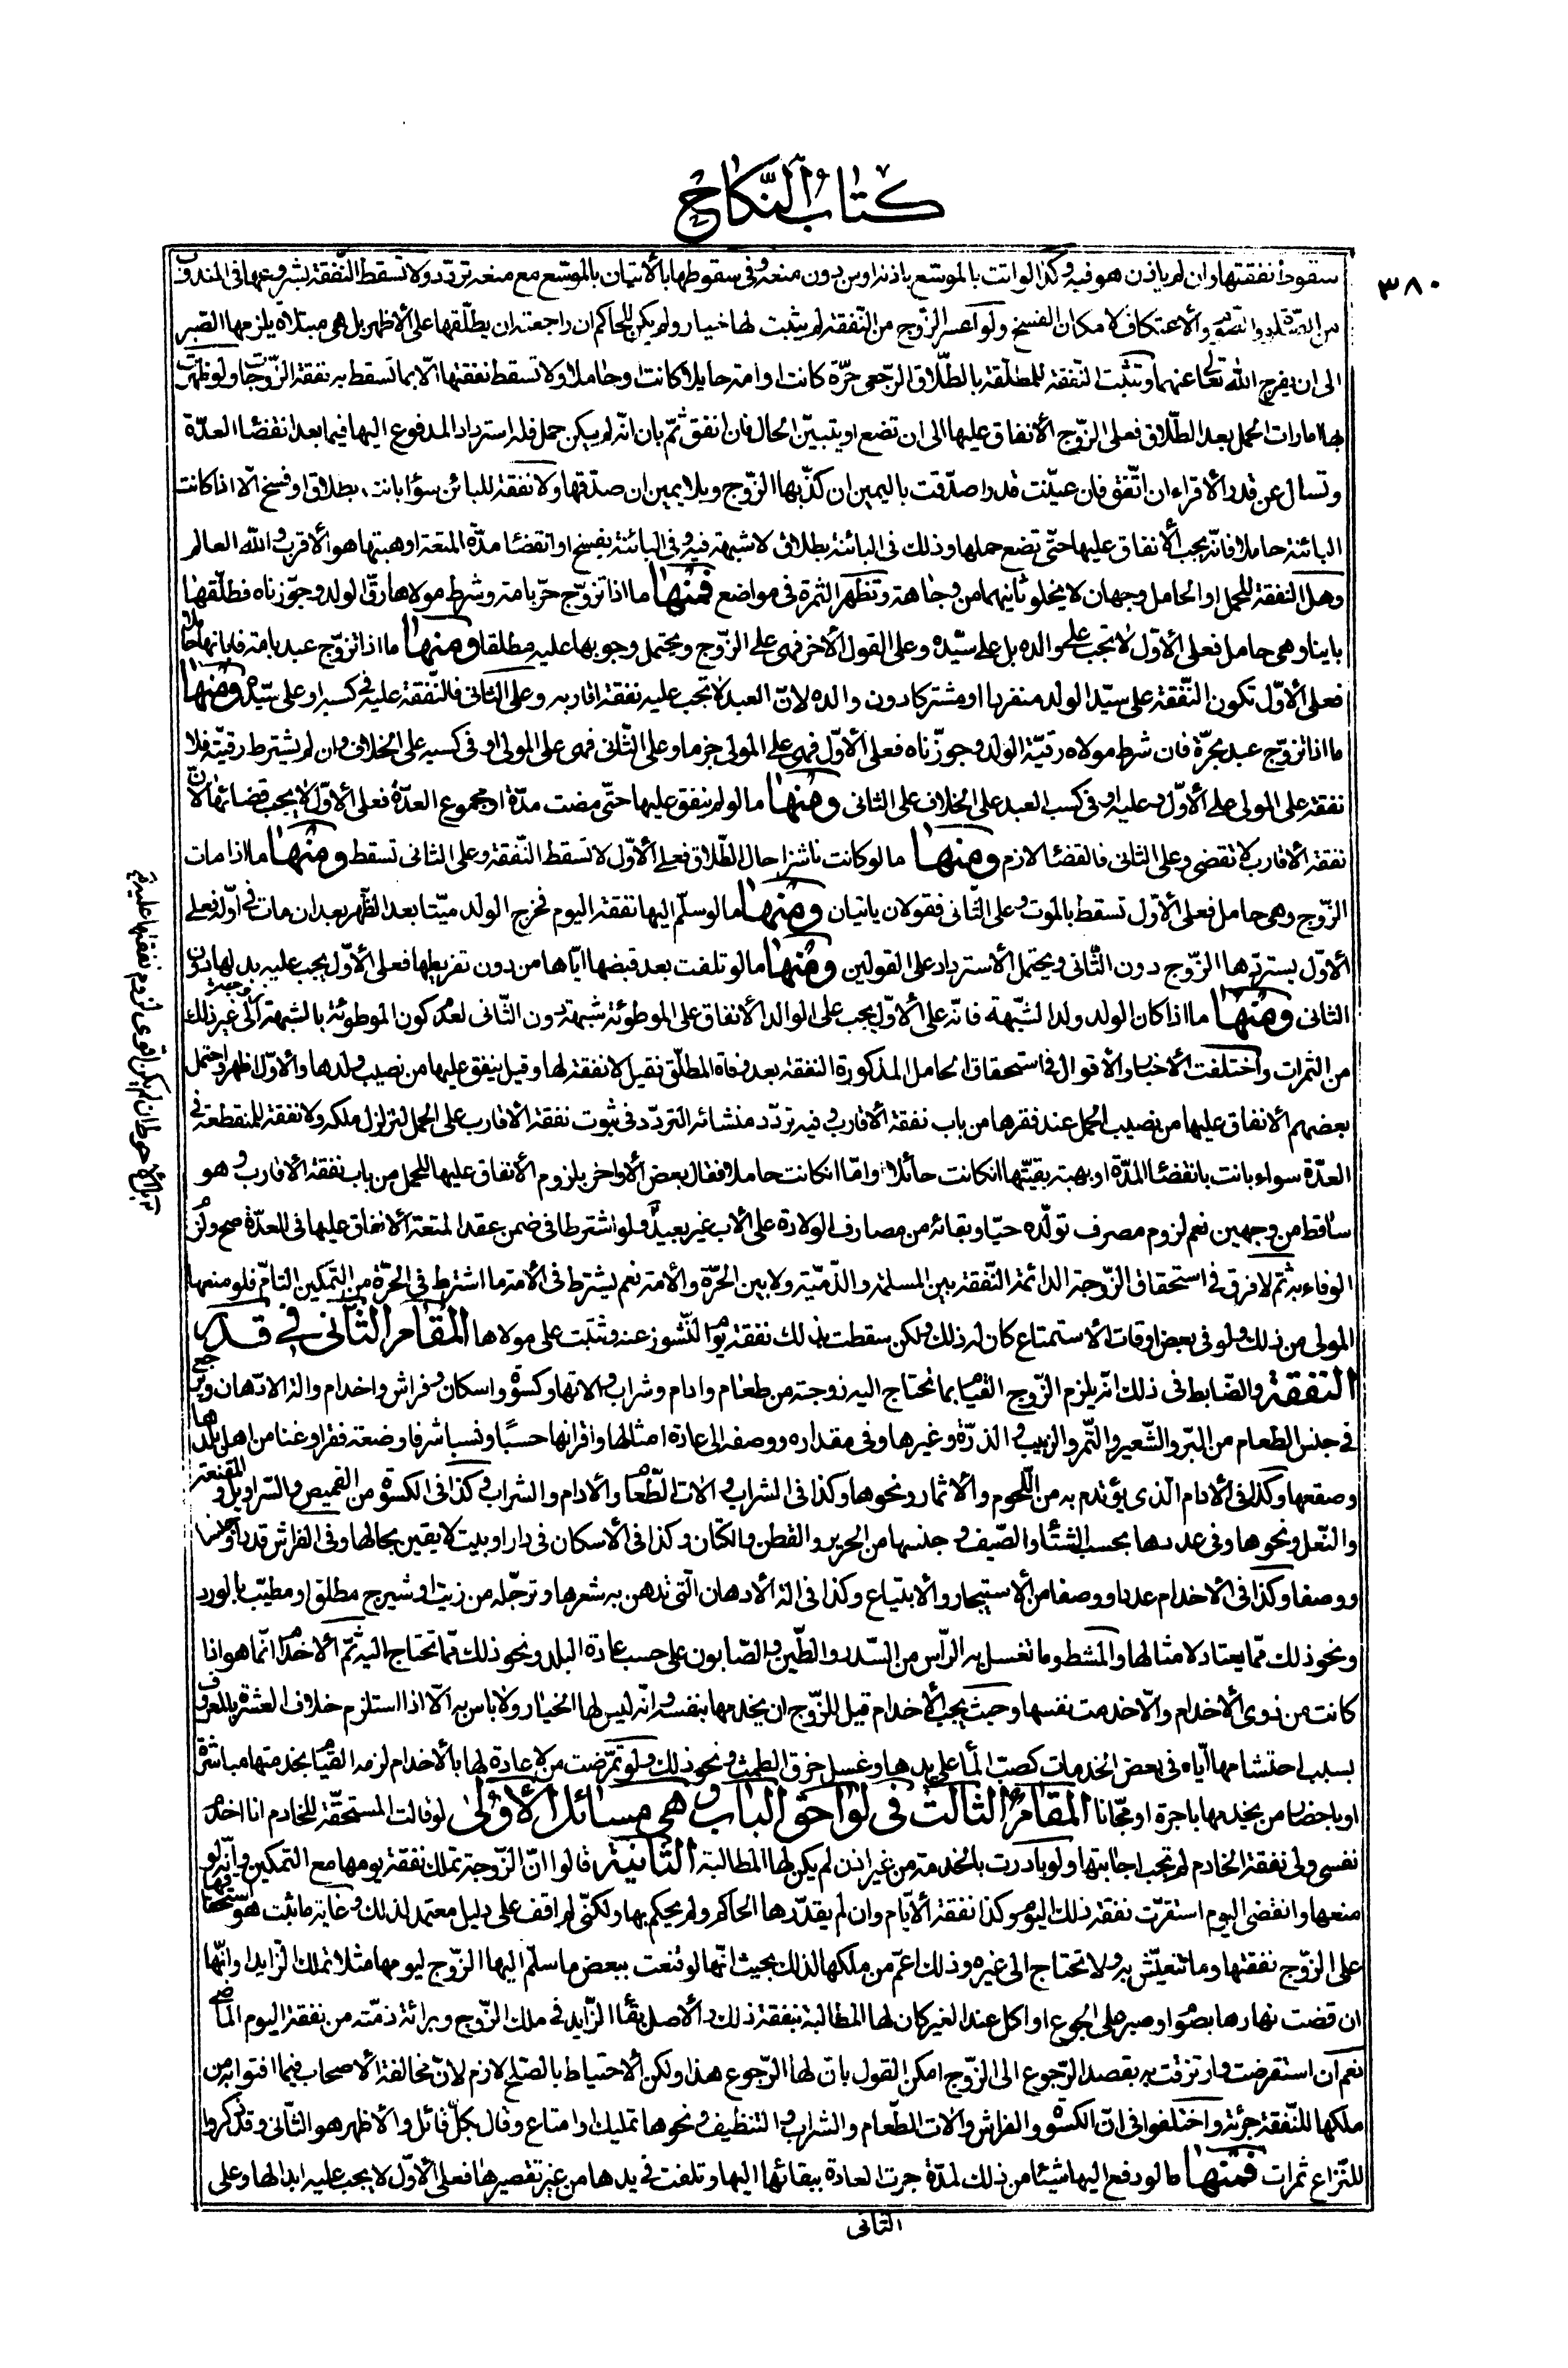 كتاب النكاح
٣٨٠
سقوط نفقتها وان لم ياذن هو فيه وكذا لو اتت بالموسّع باذنه او من دون منعه وفى سقوطها بالأتيان بالموسّع مع منعه تردّد ولا تسقط النّفقة بشروعها فى المندوب
من الصّوم والأعتكاف لامكان الفسخ ولو اعسر الزّوج من النّفقة لم يثبت لها خيار ولم يكن للحاكم ان راجعته ان يطلّقها على الأظهر بل هى مبتلاة يلزمها الصّبر
الى ان يفرج اللّه تعالى عنهما وتثبت النّفقة للمطلّقة بالطّلاق الرّجعى حرّة كانت او امة حايلا كانت او حاملا ولا تسقط نفقتها الّا بما تسقط به نفقة الزّوجة ولو ظهرت
بها امارات الحمل بعد الطّلاق فعلى الزّوج الأنفاق عليها الى ان تضع او يتبيّن الحال فان انفق ثمّ بان انّه لم يكن حمل فله استرداد المدفوع اليها فيما بعد انقضاء العدّة
وتسال عن قدر الأقراء ان اتّفق فان عيّنت قدرا صدّقت باليمين ان كذّبها الزّوج وبلا يمين ان صدّقها ولا نفقة للبائن سواء بانت بطلاق او فسخ الّا اذا كانت
البائنة حاملا فانّه يجب الأنفاق عليها حتّى تضع حملها وذلك فى البائنة بطلاق لا شبهة فيه وفى البائنة بفسخ او انقضاء مدّة المتعة او هبتها هو الأقرب واللّه العالم
وهل النفقة للحمل او الحامل وجهان لا يخلو ثانيهما من وجاهة وتظهر الثمرة فى مواضع فمنها ما اذا تزوّج حرّ بامة وشرط مولاها رقّ الولد وجوّزناه فطلّقها
باينا وهى حامل فعلى الأوّل لا تجب على والده بل على سيّده وعلى القول الأخر فهى على الزّوج ويحتمل وجوبها عليه مطلقا ومنها ما اذا تزوّج عبد بامة فابانها حاملا
فعلى الأوّل تكون النّفقة على سيّد الولد منفردا او مشتركا دون والده لانّ العبد لا تجب عليه نفقة اقاربه وعلى الثانى فالنّفقة عليه فى كسبه او على سيّده ومنها
ما اذا تزوّج عبد بحرّة فان شرط مولاه رقيّة الولد وجوزّناه فعلى الأوّل فهى على المولى جزما وعلى الثّانى فهى على المولى او فى كسبه على الخلاف وان لم يشترط رقيّته فلا
نفقة على المولى على الأوّل وعليه او فى كسب العبد على الخلاف على الثانى ومنها ما لو لم ينفق عليها حتّى مضت مدّة او مجموع العدّة فعلى الأوّل لا يجب قضائها لانّ
نفقة الأقارب لا تقضى وعلى الثانى فالقضاء لازم ومنها ما لو كانت ناشزا حال الطّلاق فعلى الأوّل لا تسقط النّفقة وعلى الثانى تسقط ومنها ما اذا مات
الزّوج وهى حامل فعلى الأوّل تسقط بالموت وعلى الثّانى فقولان ياتيان ومنها ما لو سلّم اليها نفقة اليوم فخرج الولد ميّتا بعد الظّهر بعد ان مات فى اوّله فعلى
الأوّل يستردّها الزّوج دون الثّانى ويحتمل الأسترداد على القولين ومنها ما لو تلفت بعد قبضها ايّاها من دون تفريطها فعلى الأوّل يجب عليه بدلها دون
الثانى ومنها ما اذا كان الولد ولد الشّبهة فانّه على الأوّل يجب على الوالد الأنفاق على الموطوئة شبهة دون الثّانى لعدم كون الموطوئة بالشبهة زوجة الى غير ذلك
من الثمرات واختلفت الأخبار والأقوال فى استحقاق الحامل المذكورة النفقة بعد وفاة المطلّق فقيل لا نفقة لها وقيل ينفق عليها من نصيب ولدها والأوّل اظهر واحتمل
بعضهم الأنفاق عليها من نصيب الحمل عند فقرها من باب نفقة الأقارب وفيه تردّد منشائه التردّد فى ثبوت نفقة الأقارب على الحمل لتزلزل ملكه ولا نفقة للمنقطعة فى
العدّة سواء بانت بانقضاء المدّة او بهبة بقيّتها ان كانت حائلا وامّا ان كانت حاملا فقال بعض الأواخر بلزوم الأنفاق عليها للحمل من باب نفقة الأقارب وهو
ساقط من وجهين نعم لزوم مصرف تولّده حيّا وبقائه من مصارف الولادة على الأب غير بعيد ولو اشترطا فى ضمن عقد المتعة الأنفاق عليها فى العدّة صح ولزم
الوفاء به ثمّ لا فرق فى استحقاق الزّوجة الدائمة النّفقة بين المسلمة والذّميّة ولا بين الحرّة والأمة نعم يشترط فى الأمة ما اشترط فى الحرّة من التّمكين التامّ فلو منعها
المولى من ذلك ولو فى بعض اوقات الأستمتاع كان له ذلك ولكن سقطت بذلك نفقة يوم النّشوز عنه وثبتت على مولاها المقام الثّانى فى قدر
النفقة والضّابط فى ذلك انّه يلزم الزّوج القيام بما تحتاج اليه زوجته من طعام وادام وشراب والاتها وكسوة واسكان وفراش واخدام والة الادّهان ويرجع
فى جنس الطعام من البرّ والشّعير والتّمر والزبيب والذرّة وغيرها وفى مقداره ووصفه الى عادة امثالها واقرانها حسبًا ونسبا شرفا وضعة فقرا وغنا من اهل بلدها
وصقعها وكذا فى الأدام الّذى يؤتدم به من اللّحوم والأثمار ونحوها وكذا فى الشراب والات الطّعام والأدام والشراب وكذا فى الكسوة من القميص والسّراويل والمقنعة
والنّعل ونحوها وفى عددها بحسب الشّتاء والصّيف وجنسها من الحرير والقطن والكتّان وكذا فى الأسكان فى دار او بيت لايقين بحالها وفى الفراش قدرا وجنسا
ووصفا وكذا فى الأخدام عددا ووصفا من الأستيجار والأبتياع وكذا فى الة الأدهان الّتى تدهن به شعرها وترجّله من زيت او شيرج مطلق او مطيّب بالورد
ونحو ذلك ممّا يعتاد لامثالها والمشط وما تغسل به الرّأس من السّدر والطّين والصّابون على حسب عادة البلد ونحو ذلك ممّا تحتاج اليه ثمّ الأخدام انّما هو اذا
كانت من ذوى الأخدام والّا خدمت نفسها وحيث يجب الأخدام قيل للزّوج ان يخدمها بنفسه وانّه ليس لها الخيار ولا باس به الّا اذا استلزم خلاف العشرة بالمعروف
بسبب احتشامها ايّاه فى بعض الخدمات كصبّ الماء على يدها وغسل خرق الطمث ونحو ذلك ولو تمرّضت من لا عادة لها بالأخدام لزمه القيام بخدمتها مباشرة
او باحضار من يخدمها باجرة او مجّانا المقام الثالث فى لواحق الباب وهى مسائل الأولى لو قالت المستحقّة للخادم انا اخدم
نفسى ولى نفقة الخادم لم تجب اجابتها ولو بادرت بالخدمة من غير اذن لم يكن لها المطالبة الثانية قالوا انّ الزّوجة تملك نفقة يومها مع التمكين وانّه لو
منعها وانقضى اليوم استقرّت نفقة ذلك اليوم وكذا نفقة الأيّام وان لم يقدّرها الحاكم ولم يحكم بها ولكنّى لم اقف على دليل معتمد لذلك وغاية ما ثبت هو استحقاقها
على الزّوج نفقتها وما تتعيّش به ولا تحتاج الى غيره وذلك اعمّ من ملكها لذلك بحيث انّها لو قنعت ببعض ما سلّم اليها الزّوج ليومها مثلا تملك الزّايد او انّها
ان قضت نهارها بصوم او صبر على الجوع او اكل عند الغير كان لها المطالبة بنفقة ذلك والأصل بقاء الزّايد فى ملك الزّوج وبرائة ذمّته من نفقة اليوم الماضى
نعم ان استقرضت وارتزقت به بقصد الرّجوع الى الزّوج امكن القول بانّ لها الرّجوع هذا ولكن الأحتياط بالصّلح لازم لانّ مخالفة الأصحاب فيما افتوا به من
ملكها للنّفقة جرئة واختلفوا فى انّ الكسوة والفراش والات الطّعام والشراب والتنظيف ونحوها تمليك او امتاع وقال بكلّ قائل والأظهر هو الثّانى وقد ذكروا
للنّزاع ثمرات فمنها ما لو دفع اليها شيئا من ذلك لمدّة جرت العادة ببقائها اليها وتلفت فى يدها من غير تقصيرها فعلى الأوّل لا يجب عليه ابدالها وعلى
الثانى